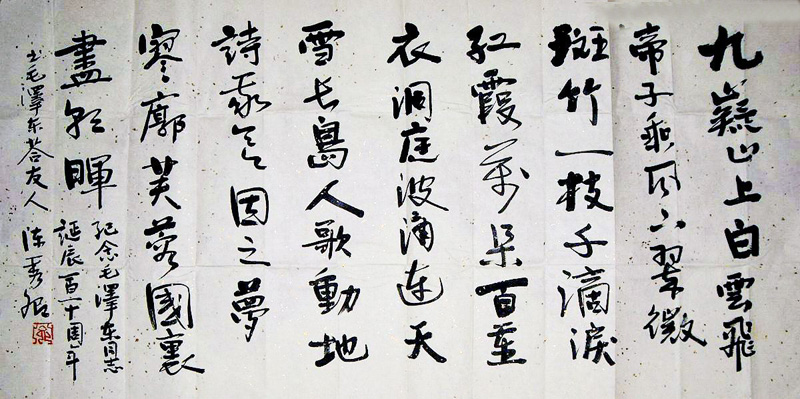 九嶷山上白雲飛
帝子乘风下翠微
斑竹一枝千滴淚
红霞萬朵百重
衣洞庭波涌连天
雪长島人歌動地
詩我欲因之夢
寥廓芙蓉國裏
盡朝暉
纪念毛澤东同志
诞辰百二十周年
书毛澤东答友人 陈秀